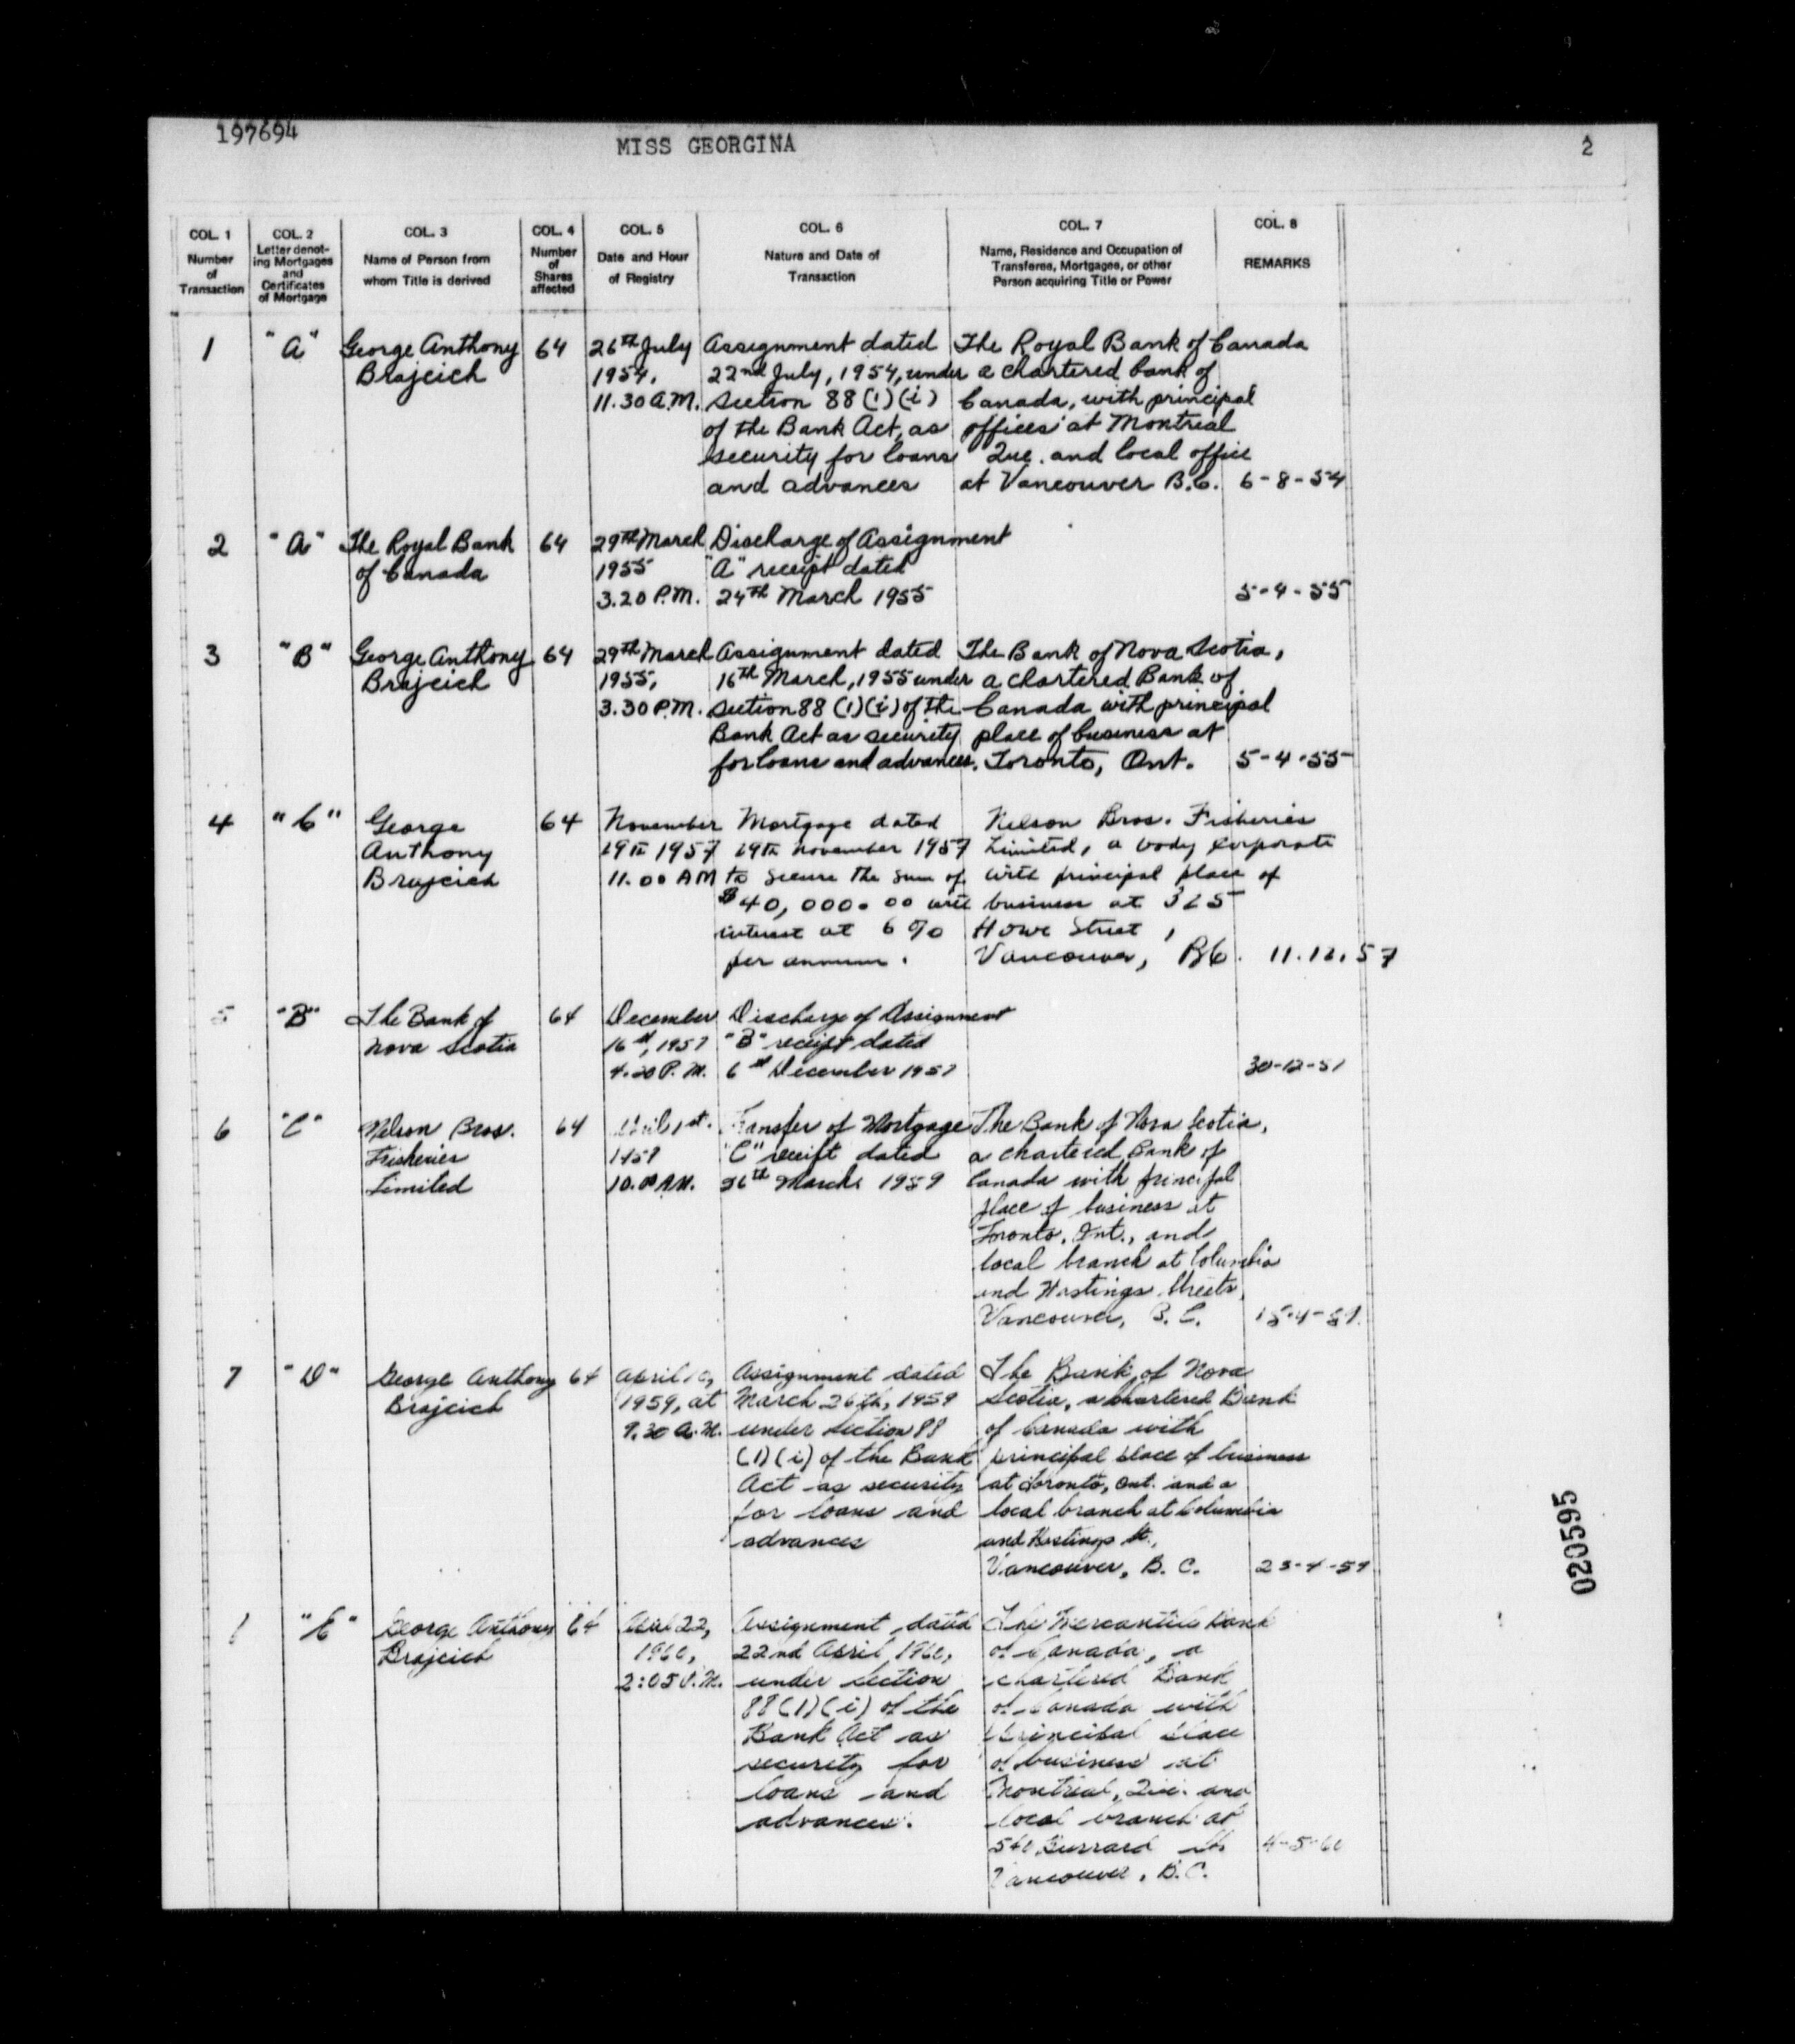 197694
MISS GEORGINA
2
COL. 1
Number
of
Transaction
COL. 2
Letter denot-
ing Mortgages
and
Certificates
of Mortgage
COL. 3
Name of Person from
whom Title is derived
COL. 4
Number
of
Shares
affected
COL. 5
Date and Hour
of Registry
COL. 6
Nature and Date of
Transaction
COL. 7
Name, Residence and Occupation of
Transferee, Mortgagee, or other
Person acquiring Title or Power
COL. 8
REMARKS
1
"A"
George Anthony
Brajcich
64
26th July
1954,
11.30 A.M.
Assignment dated
22nd July, 1954, under
section 88 (1) (i)
of the Bank Act, as
security for loans
and advances
The Royal Bank of Canada
a chartered bank of
Canada, with principal
offices at Montreal
Que. and local office
at Vancouver B.C.
6-8-54
2
"A"
The Royal Bank
of Canada
64
29th March
1955
3.20 P.M.
Discharge of Assignment
"A" receipt dated
24th March 1955
5-4-55
3
"B"
George Anthony
Brajcich
64
29th March
1955,
3.30 P.M.
Assignment dated
16th March, 1955 under
section 88 (1) (i) of the
Bank Act as security
for loans and advances.
The Bank of Nova Scotia,
a chartered Bank of
Canada with principal
place of business at
Toronto, Ont.
5-4-55
4
"C"
George
Anthony
Brajcich
64
November
29th 1957
11.00 AM
Mortgage dated
29th November 1957
to secure the sum of
$40,000.00 with
interest at 6%
per annum.
Nelson Bros. Fisheries
Limited, a body corporate
with principal place of
business at 325
Howe Street,
Vancouver, BC.
11.12.57
5
"B"
The Bank of
Nova Scotia
64
December
16th, 1957
4.20 P.M.
Discharge of Assignment
"B" receipt dated
6th December 1957
30-12-57
6
"C"
Nelson Bros.
Fisheries
Limited
64
April 1st.
1959
10.00 A.M.
Transfer of Mortgage
"C" receipt dated
26th March 1959
The Bank of Nova Scotia,
a chartered Bank of
Canada with principal
place of business at
Toronto, Ont., and
local branch at Columbia
and Hastings Streets,
Vancouver, B.C.
15-4-59.
7
"D"
George Anthony
Brajcich
64
April 10,
1959, at
9.30 A.M.
Assignment dated
March 26th, 1959
under section 88
(1) (i) of the Bank
Act as security
for loans and
advances
The Bank of Nova
Scotia, a chartered Bank
of Canada with
principal place of business
at Toronto, Ont. and a
local branch at Columbia
and Hastings St.,
Vancouver, B.C.
23-4-59
"E"
George Anthony
Brajcich
64
April 22,
1960,
2:05 P.M.
Assignment dated
22nd April 1960,
under section
88 (1) (i) of the
Bank Act as
security for
loans and
advances.
The Mercantile Bank
of Canada, a
chartered Bank
of Canada with
principal place
of business at
Montreal, Que. and
local branch at
540 Burrard St.
Vancouver, B.C.
4-5-60
020595